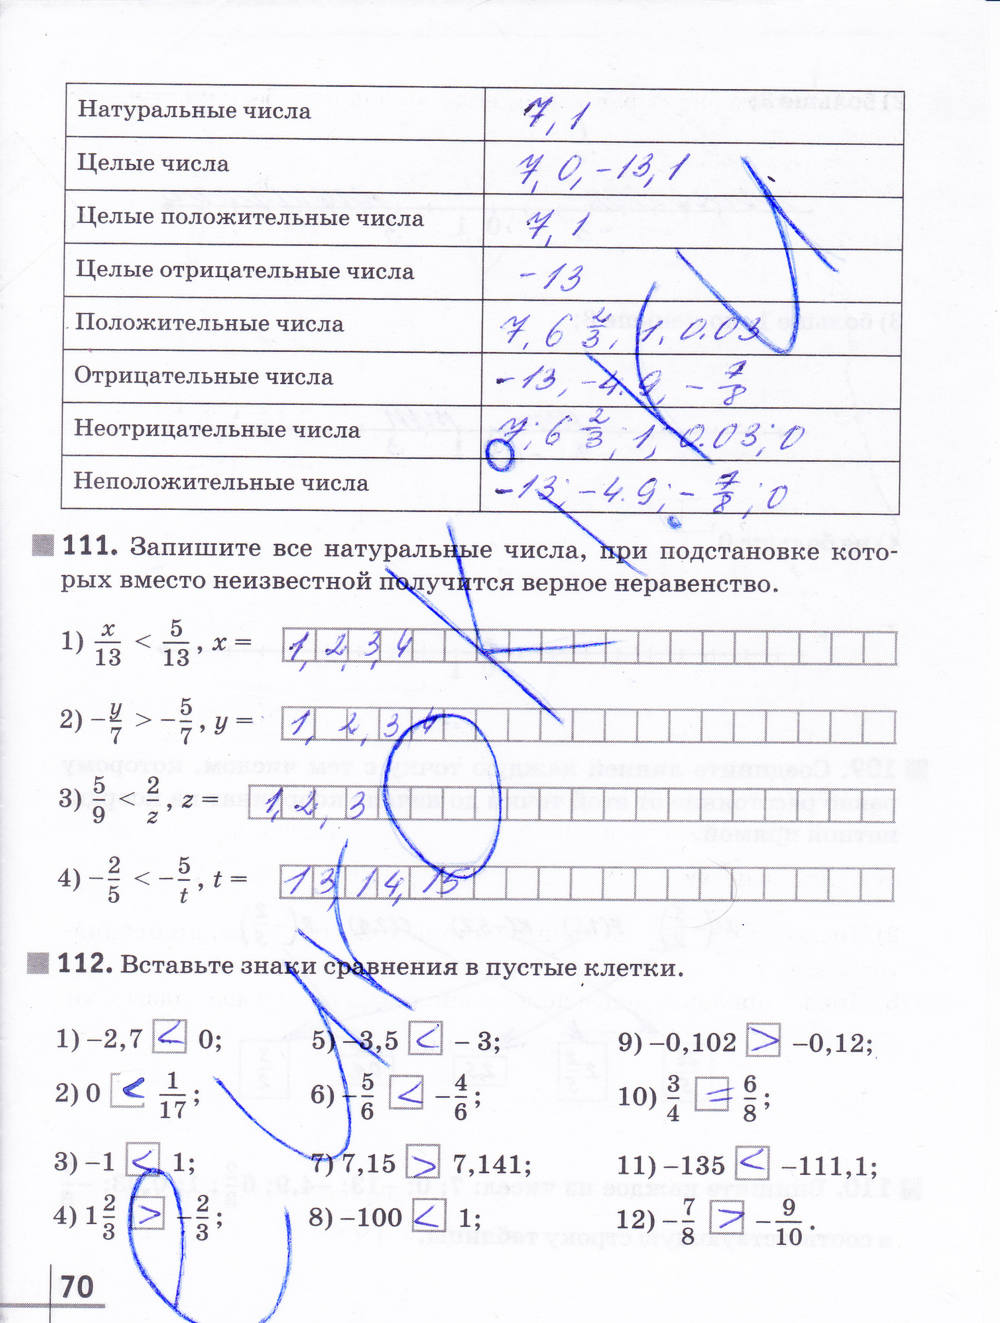 Натуральные числа 7, 1
Целые числа 7, 0, -13, 1
Целые положительные числа 7, 1
Целые отрицательные числа -13
Положительные числа 7, 6 2/3, 1, 0.03
Отрицательные числа -13, -4.9, - 7/8
Неотрицательные числа 7; 6 2/3; 1; 0.03; 0
Неположительные числа -13; -4.9; - 7/8; 0
111. Запишите все натуральные числа, при подстановке кото-
рых вместо неизвестной получится верное неравенство.
1) x/13 < 5/13, x = 1, 2, 3, 4
2) -y/7 > -5/7, y = 1, 2, 3 4
3) 5/9 2/z, z = 1, 2, 3
4) -2/5 < -5/t, t = 13, 14, 15
112. Вставьте знаки сравнения в пустые клетки.
1) -2,7 < 0; 5) -3,5 < - 3; 9) -0,102 > -0,12;
2) 0 < 1/17; 6) -5/6 < -4/6; 10) 3/4 = 6/8;
3) -1 < 1; 7) 7,15 > 7,141; 11) -135 < -111,1;
4) 1 2/3 > -2/3; 8) -100 < 1; 12) -7/8 > -9/10.
70